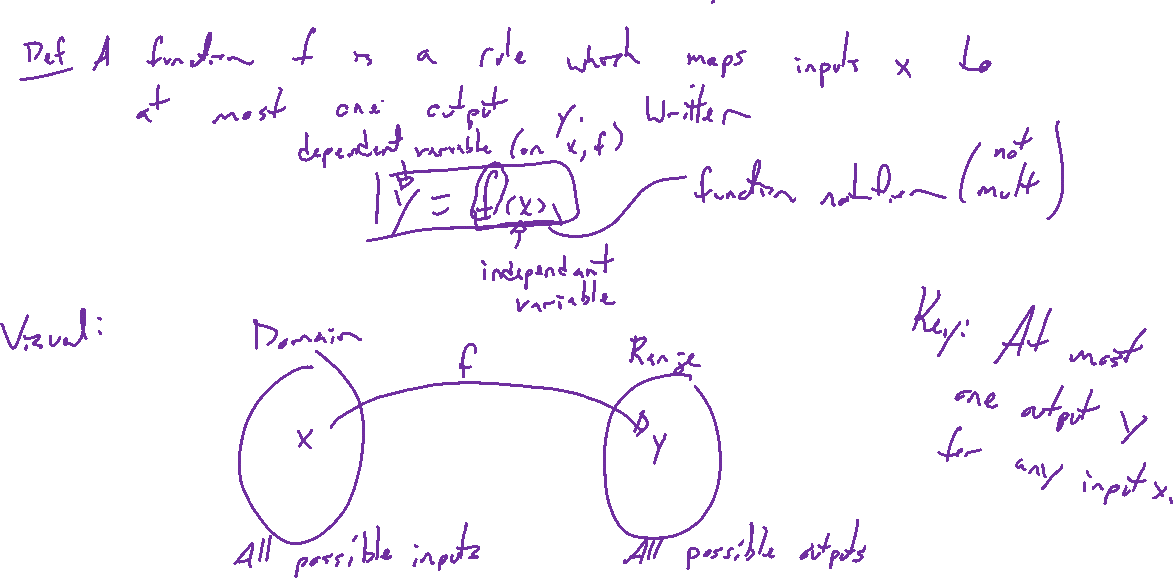 Def A function f is a rule which maps inputs x to
at most one output y. Written
dependent variable (on x, f)
y = f(x)
function notation (not mult)
independant
variable
Visual:
Domain
f
Range
x
y
All possible inputs
All possible outputs
Key: At most
one output y
for any input x.